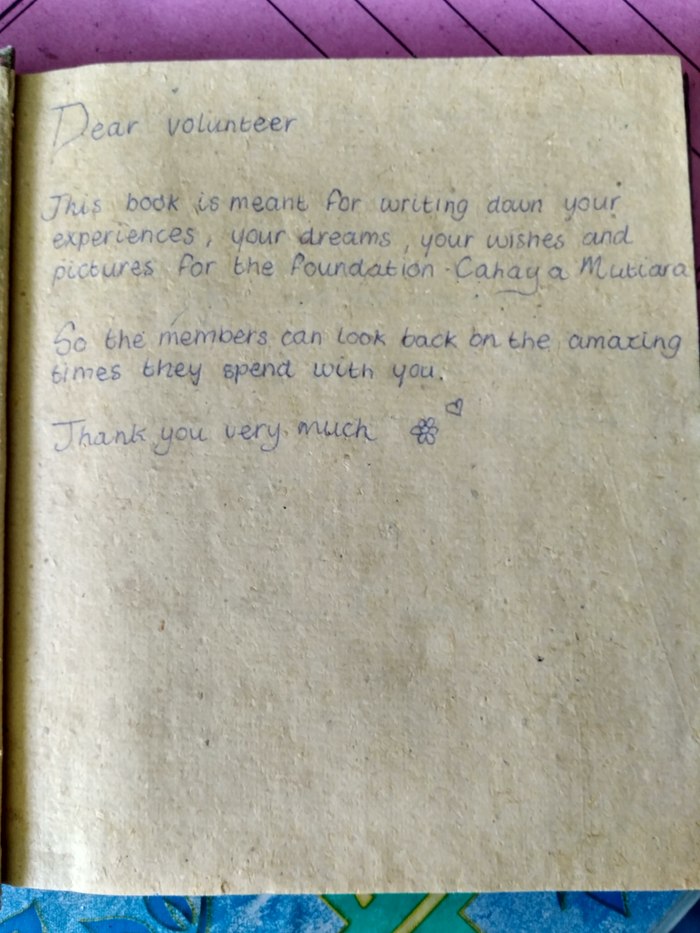 Dear volunteer
This book is meant for writing down your
experiences, your dreams, your wishes and
pictures for the foundation Cahaya Mutiara
So the members can look back on the amazing
times they spend with you.
Thank you very much